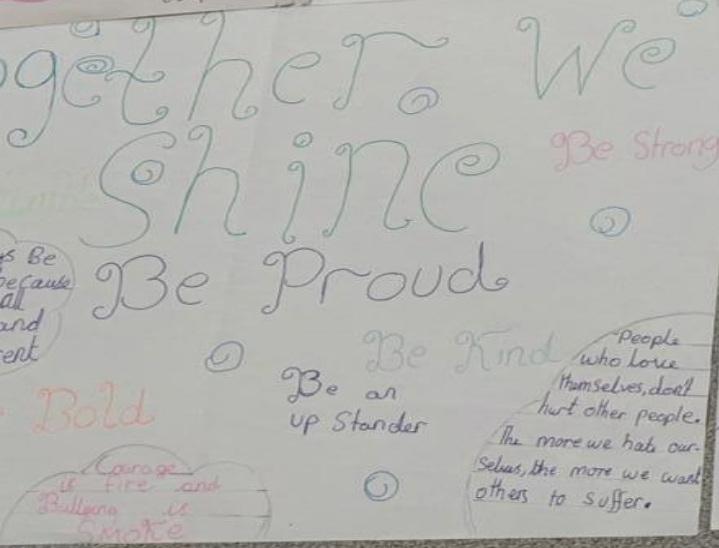 ogether We
Shine
Be Strong
s Be
because
all
and
ent
Be Proud
Be Kind
Bold
Be an
up Stander
People
who Love
themselves, don't
hurt other people.
The more we hate our-
selves, the more we want
others to suffer.
Courage
is fire and
Bullying is
Smoke